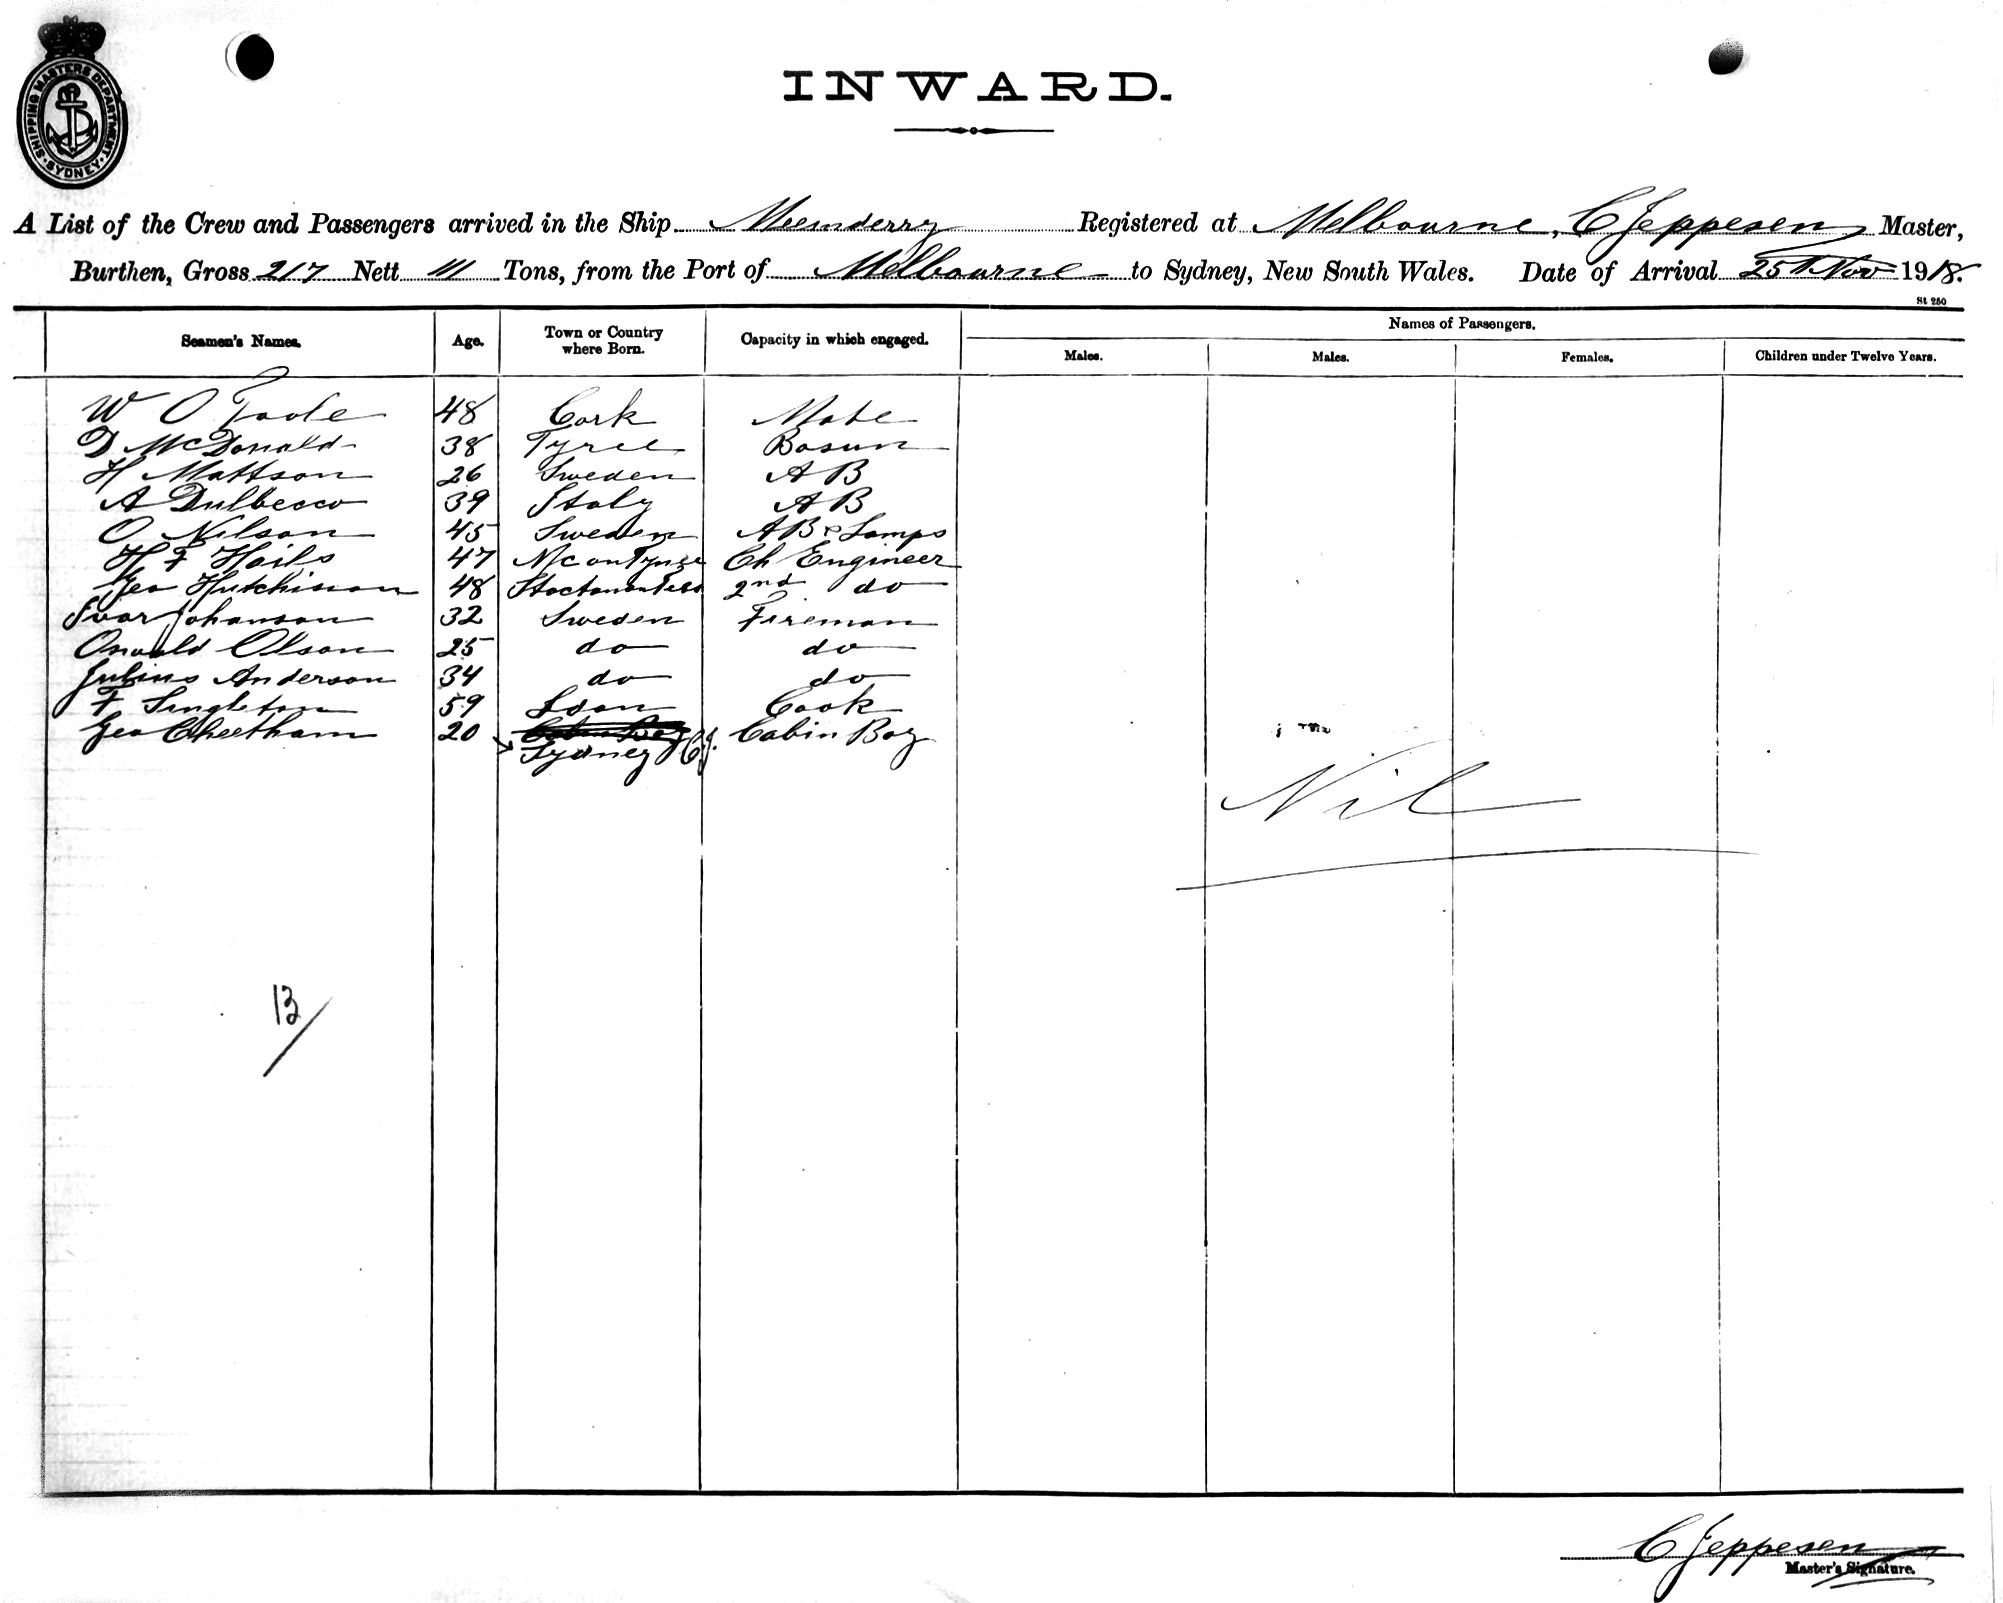 SHIPPING MASTERS DEPARTMENT · SYDNEY ·
INWARD.
A List of the Crew and Passengers arrived in the Ship Meemderry Registered at Melbourne, C Jeppesen Master,
Burthen, Gross 217 Nett 111 Tons, from the Port of Melbourne to Sydney, New South Wales. Date of Arrival 25th Nov 1918.
St 250
Seamen's Names. Age. Town or Country where Born. Capacity in which engaged. Names of Passengers.
Males. Males. Females. Children under Twelve Years.
W O Toole 48 Cork Mate
D McDonald 38 Tyree Bosun
H Mattson 26 Sweden A B
A Dulbecco 39 Italy A B
O Nilson 45 Sweden A B & Lamps
H F Hails 47 N'c on Tyne Ch Engineer
Geo Hutchison 48 Stocton on Tees 2nd do
Ivar Johanson 32 Sweden Fireman
Oswald Olson 25 do do
Julius Anderson 34 do do
F Singleton 59 Cook
Geo Cheetham 20 Cabin Boy
Sydney CJ.
Nil
13/
C Jeppesen
Master's Signature.